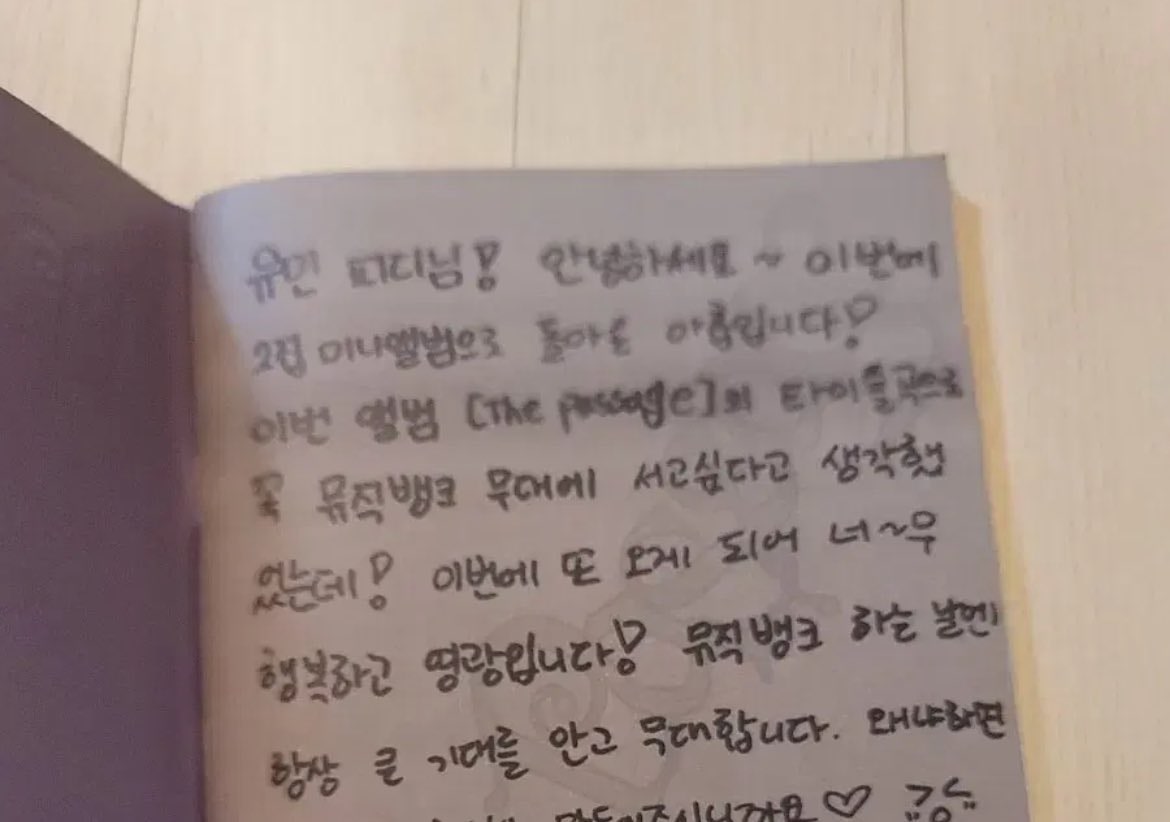 유민 피디님! 안녕하세요 ~ 이번에
2집 미니앨범으로 돌아온 아홉입니다!
이번 앨범 [The passage]의 타이틀곡으로
꼭 뮤직뱅크 무대에 서고싶다고 생각했
었는데! 이번에 또 오게 되어 너~무
행복하고 영광입니다! 뮤직뱅크 하는 날엔
항상 큰 기대를 안고 무대합니다. 왜냐하면
만들어주시니까요 ♡